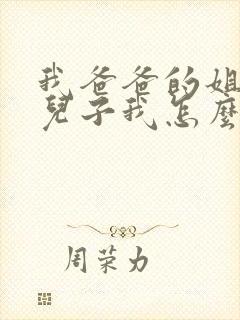 我爸爸的姐
兒子我怎麼
周荣力